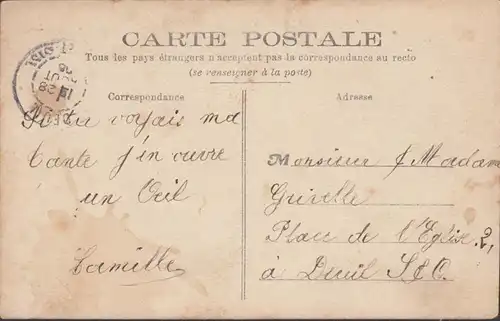 CARTE POSTALE
Tous les pays étrangers n'acceptent pas la correspondance au recto
(se renseigner à la poste)
Correspondance
Adresse
Si tu voyais ma
tante j'en ouvre
un Oeil
Camille
Monsieur & Madame
Grivelle
Place de l'Eglise 2,
à Deuil S&O.